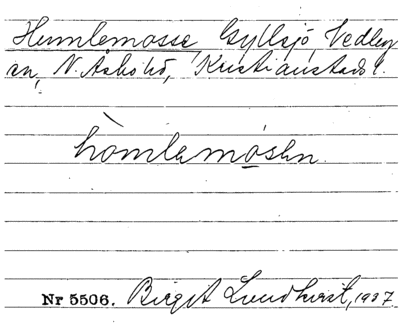 Humlemosse Gyllsjö, Vedby
sn, N. Åsbo hd, Kristianstads l.
hòmlemosen
Nr 5506. Birgit Lundqvist, 1937